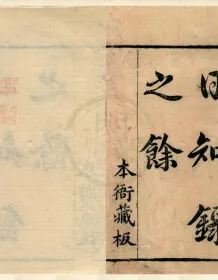 日知錄
之餘
本衙藏板